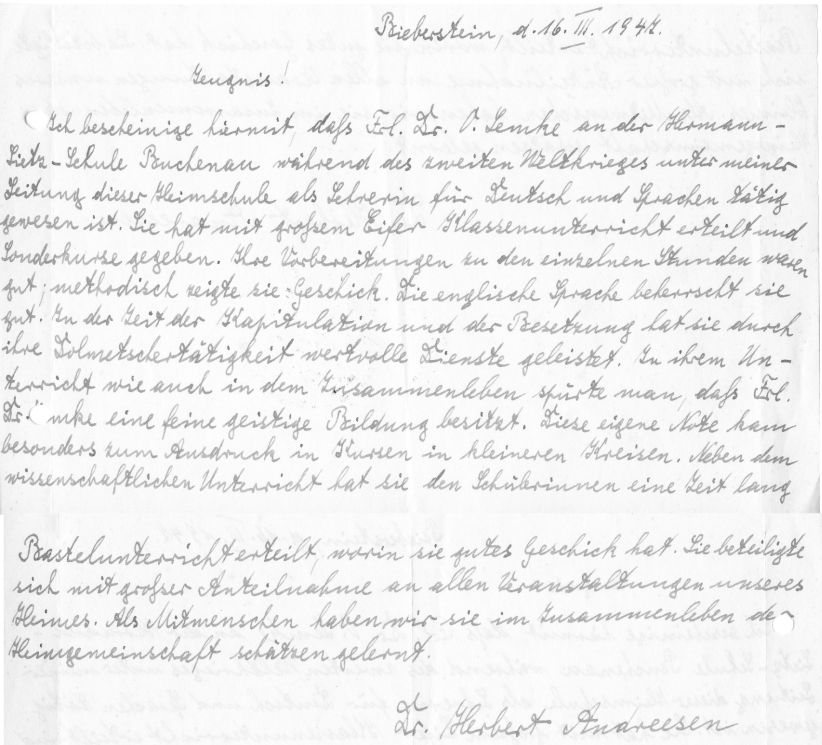 Bieberstein, d. 16. III. 1947.
Zeugnis!
Ich bescheinige hiermit, daß Frl. Dr. V. Lemke an der Hermann-
Lietz-Schule Buchenau während des zweiten Weltkrieges unter meiner
Leitung dieser Heimschule als Lehrerin für Deutsch und Sprachen tätig
gewesen ist. Sie hat mit großem Eifer Klassenunterricht erteilt und
Sonderkurse gegeben. Ihre Vorbereitungen zu den einzelnen Stunden waren
gut; methodisch zeigte sie Geschick. Die englische Sprache beherrscht sie
gut. In der Zeit der Kapitulation und der Besetzung hat sie durch
ihre Dolmetschertätigkeit wertvolle Dienste geleistet. In ihrem Un-
terricht wie auch in dem Zusammenleben spürte man, daß Frl.
Dr. Lemke eine feine geistige Bildung besitzt. Diese eigene Note kam
besonders zum Ausdruck in Kursen in kleineren Kreisen. Neben dem
wissenschaftlichen Unterricht hat sie den Schülerinnen eine Zeit lang
Bastelunterricht erteilt, worin sie gutes Geschick hat. Sie beteiligte
sich mit großer Anteilnahme an allen Veranstaltungen unseres
Heimes. Als Mitmenschen haben wir sie im Zusammenleben der
Heimgemeinschaft schätzen gelernt.
Dr. Herbert Andreesen